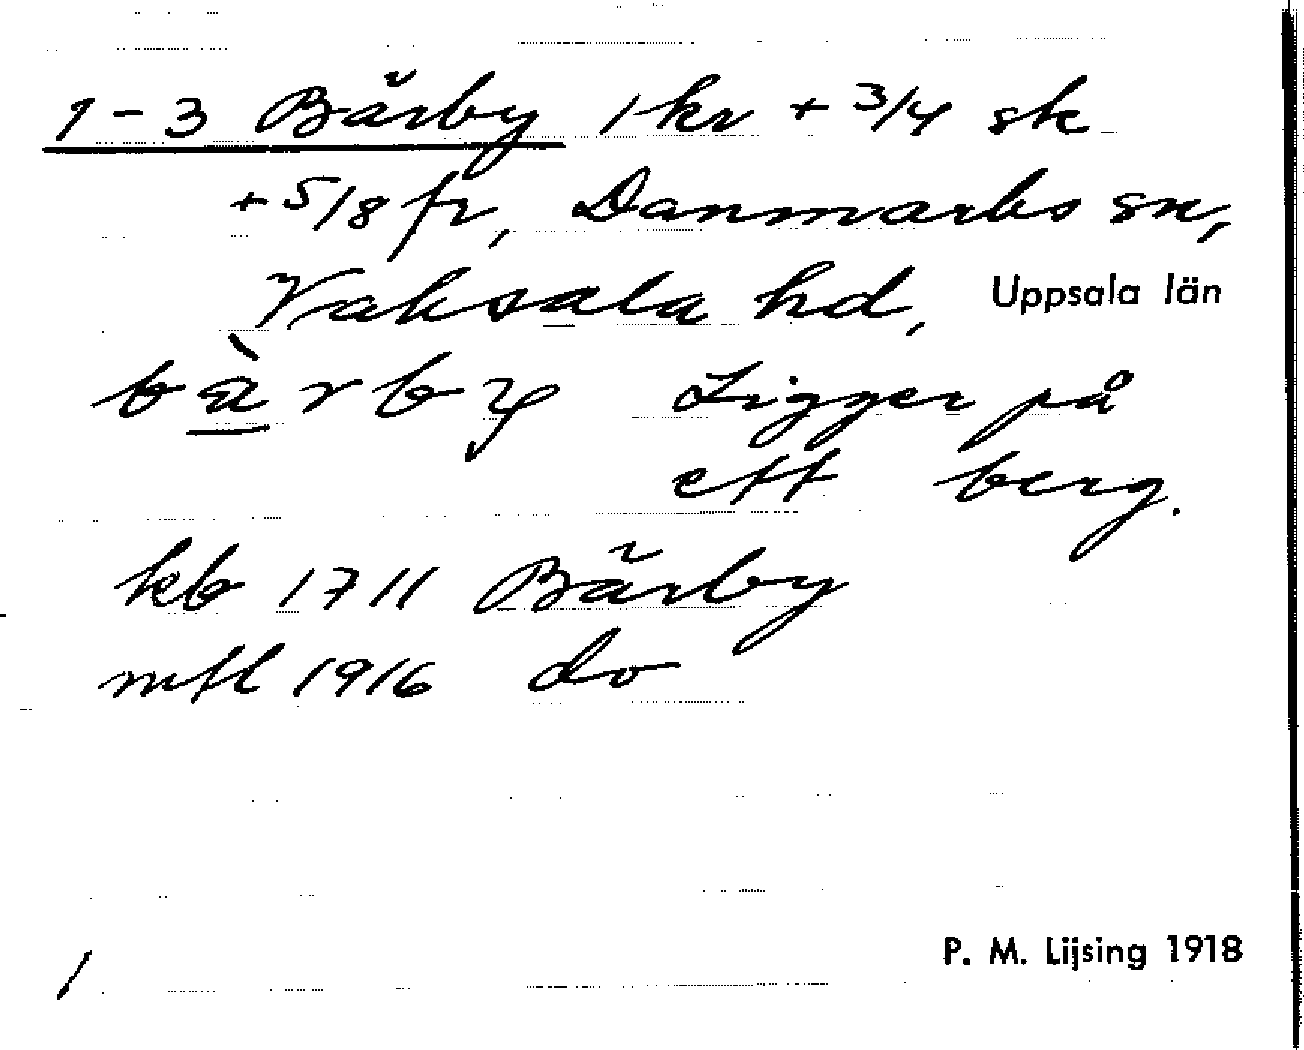 1-3 Bärby 1 kr + 3/4 sk
+ 5/8 fr, Danmarks sn,
Vaksala hd, Uppsala län
bä̀rby Ligger på
ett berg.
kb 1711 Bärby
mtl 1916 do
P. M. Lijsing 1918
/